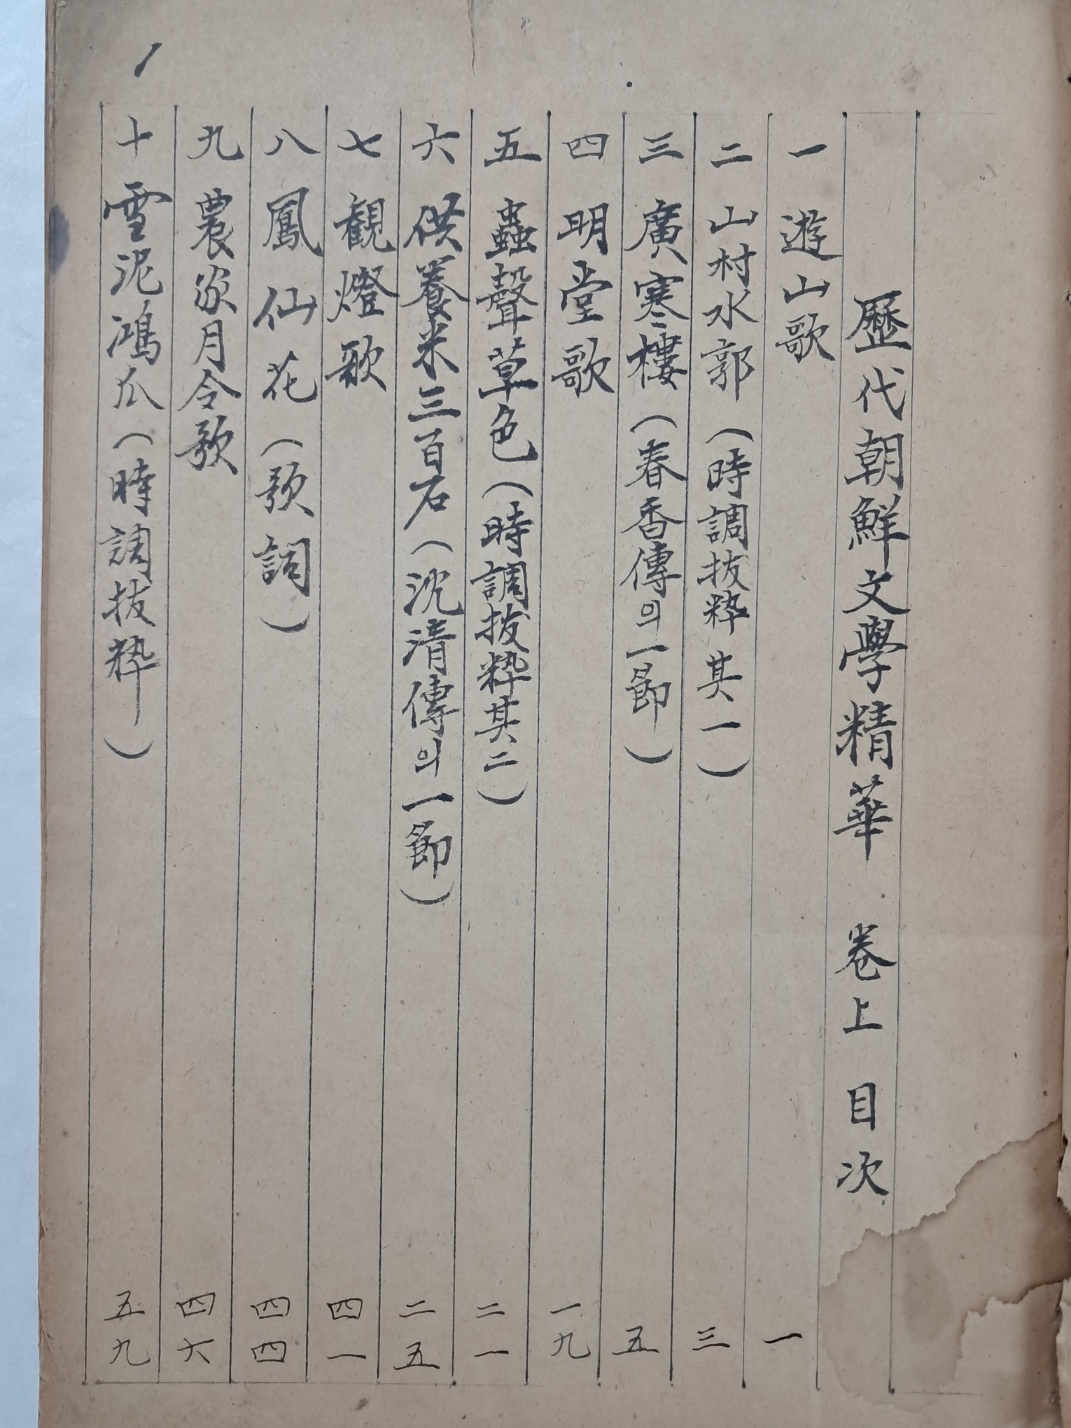 歷代朝鮮文學精華 卷上 目次
一 遊山歌 一
二 山村水郭(時調抜粹 其一) 三
三 廣寒樓(春香傳의一節) 五
四 明堂歌 一九
五 蟲聲草色(時調抜粹其二) 二一
六 供養米三百石(沈清傳의一節) 二五
七 觀燈歌 四一
八 鳳仙花(歌詞) 四四
九 農家月令歌 四六
十 雪泥鴻爪(時調抜粹) 五九
1